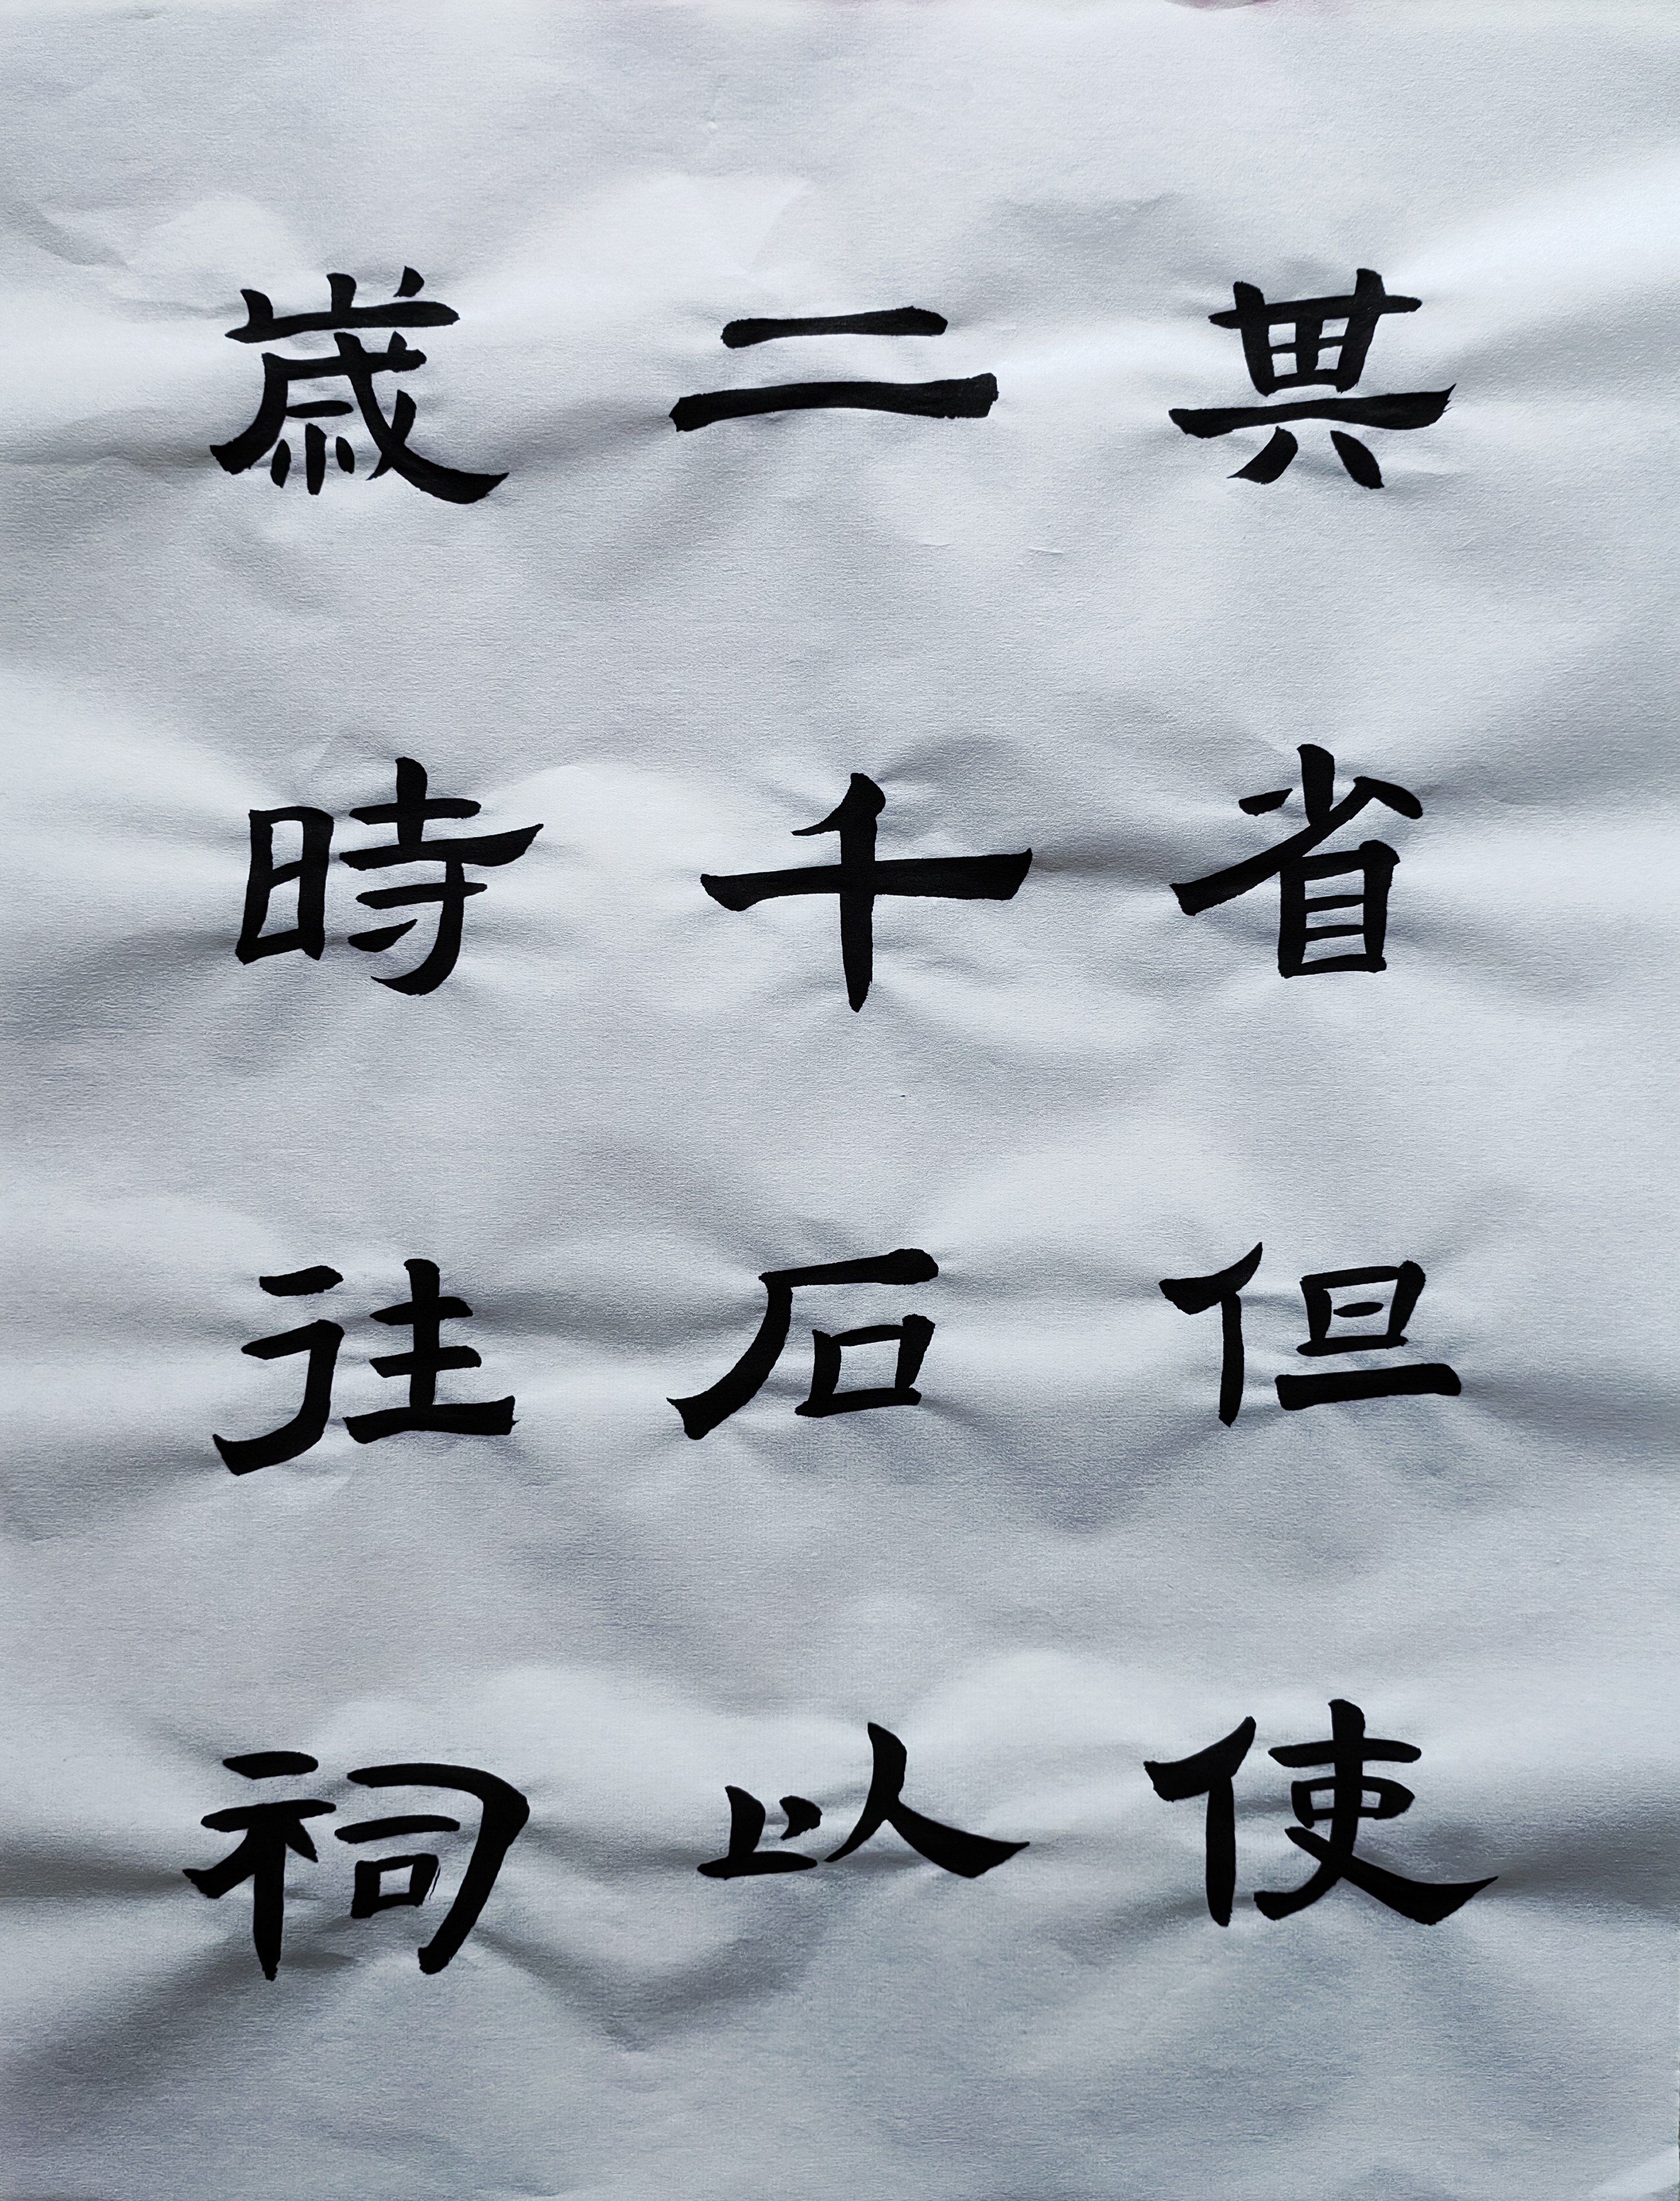 其省但使
二千石以
歲時往祠